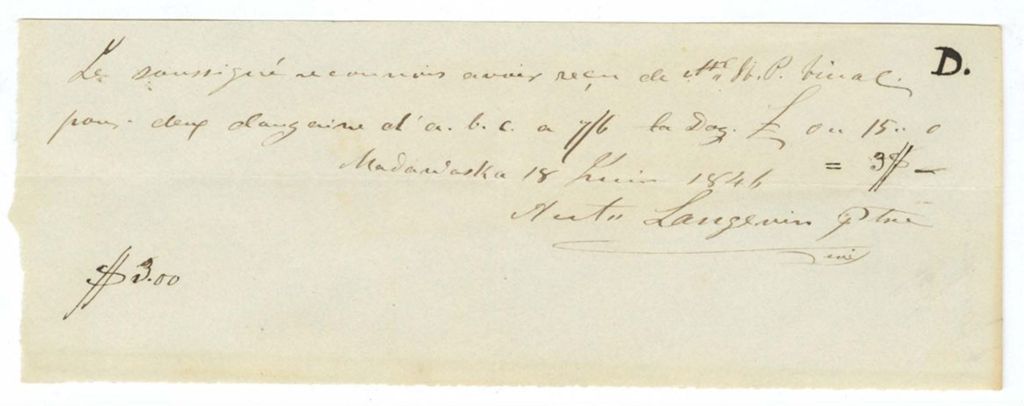 Le soussigné reconnois avoir reçu de Mr. P. D.
pour deux dougaine d'a. b. c. a 7/6 la Doz. £ ou 15.. 0
Madawaska 18 Juin 1846 = 3$ -
Ant.. Langevin Ptre
$3.00